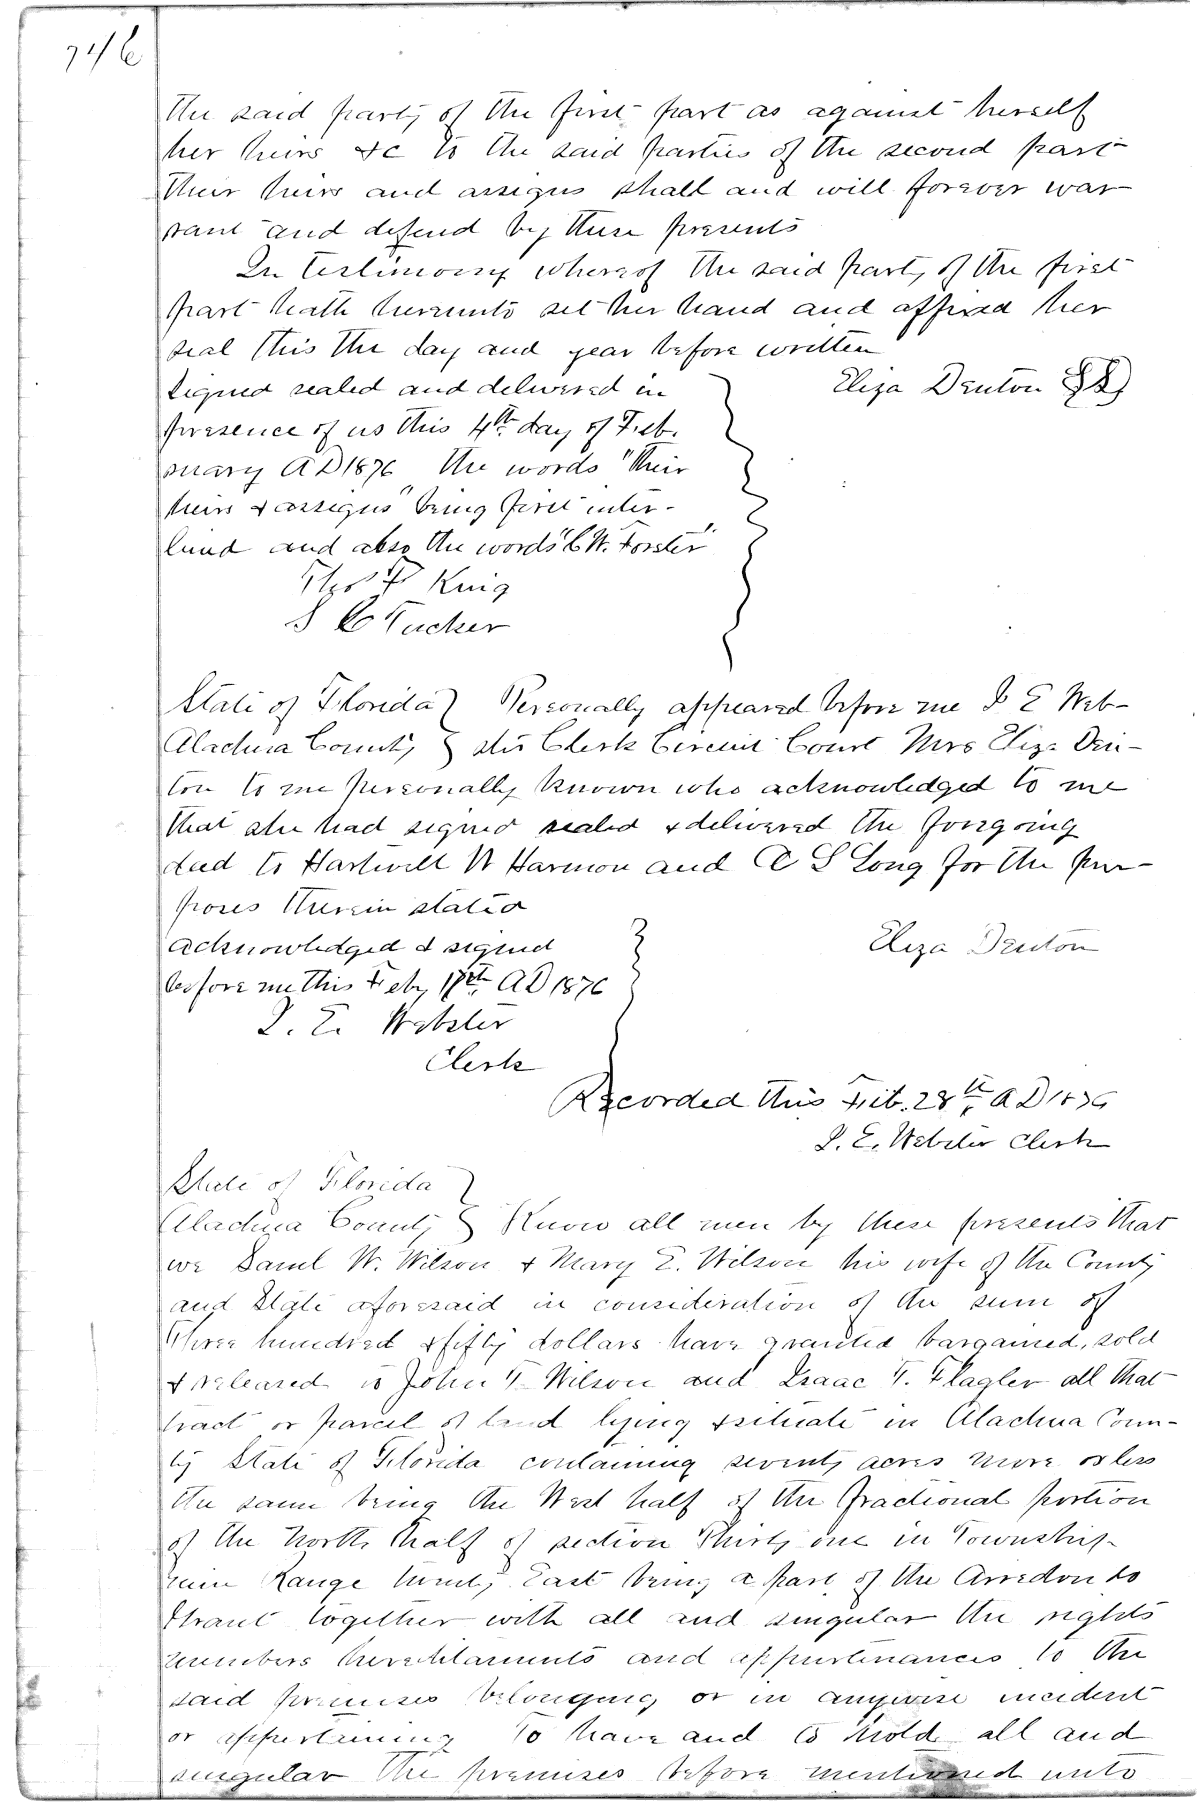 746
the said party of the first part as against herself
her heirs &c to the said parties of the second part
their heirs and assigns shall and will forever war
rant and defend by these presents
In testimony whereof the said party of the first
part hath hereunto set her hand and affixed her
seal this the day and year before written
Signed sealed and delivered in
Eliza Denton
presence of us this 4th day of Feb.
ruary AD 1876 the words "their
heirs & assigns" being first inter-
lined and also the words "C W. Forster"
Thos F King
S C Tucker
State of Florida } Personally appeared before me J E Web-
Alachua County } ster Clerk Circuit Court Mrs Eliza Den-
ton to me personally known who acknowledged to me
that she had signed sealed & delivered the foregoing
deed to Hartwell W Harmon and C S Long for the pur-
poses therein stated
acknowledged & signed
Eliza Denton
before me this Feby AD 1876
J. E. Webster
Clerk
Recorded this Feb. 28th AD 1876
J. E. Webster Clerk
State of Florida }
Alachua County } Know all men by these presents that
we Saml W. Wilson & Mary E. Wilson his wife of the County
and State aforesaid in consideration of the sum of
Three hundred & fifty dollars have granted bargained, sold
& released to John T. Wilson and Isaac T. Flagler all that
tract or parcel of land lying & situate in Alachua Coun-
ty State of Florida containing seventy acres more or less
the same being the West half of the fractional portion
of the North half of section Thirty one in Township
nine Range twenty East being a part of the Arredondo
Grant together with all and singular the rights
members hereditaments and appurtenances to the
said premises belonging or in anywise incident
or appertaining To have and to hold all and
singular the premises before mentioned unto